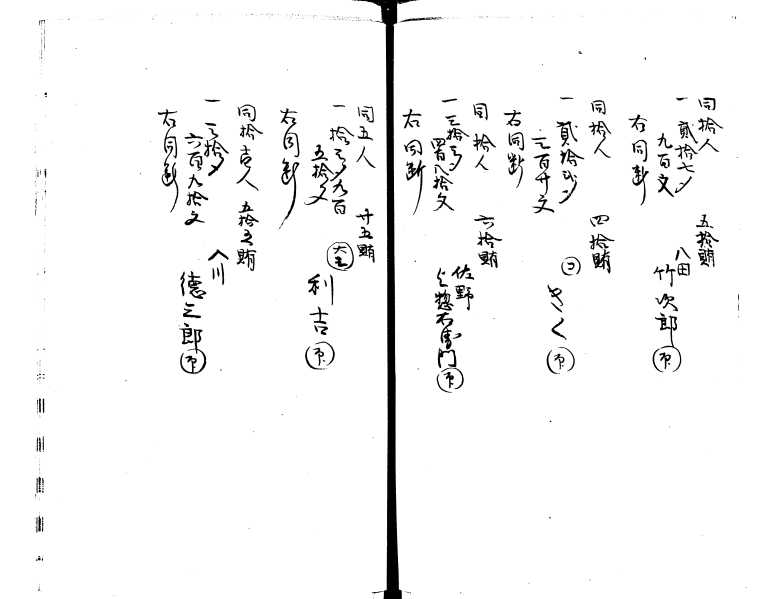 同拾人 五拾賄
一 貳拾七匁
九百文
右同断
八田
竹次郎 印
同拾人 四拾賄
一 貳拾
三百廿文
右同断
きく 印
同拾人 六拾賄
一 三拾
四百八拾文
右同断
佐野
惣右衛門 印
同五人 廿五賄
一 拾三匁九百
五拾文
右同断
利吉 印
同拾壱人 五拾五賄
一 三拾匁
六百九拾文
右同断
入川
徳三郎 印